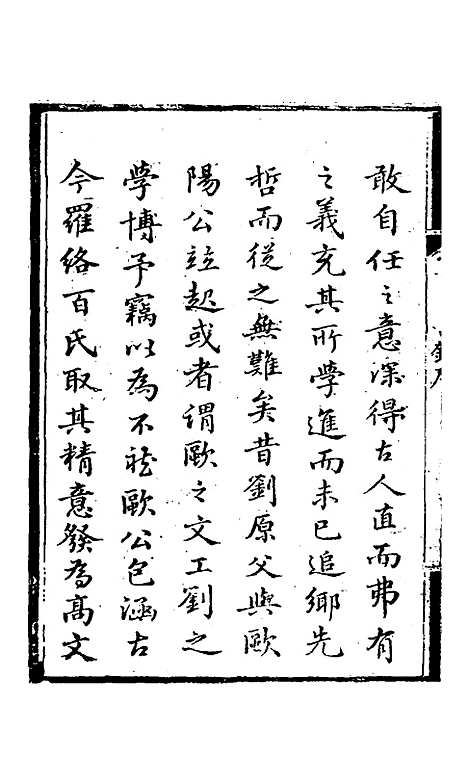 敢自任之意深得古人直而弗有
之義充其所學進而未已追鄉先
哲而從之無難矣昔劉原父與歐
陽公竝起或者謂歐之文工劉之
學博予竊以為不然歐公包涵古
今羅絡百氏取其精意發為高文